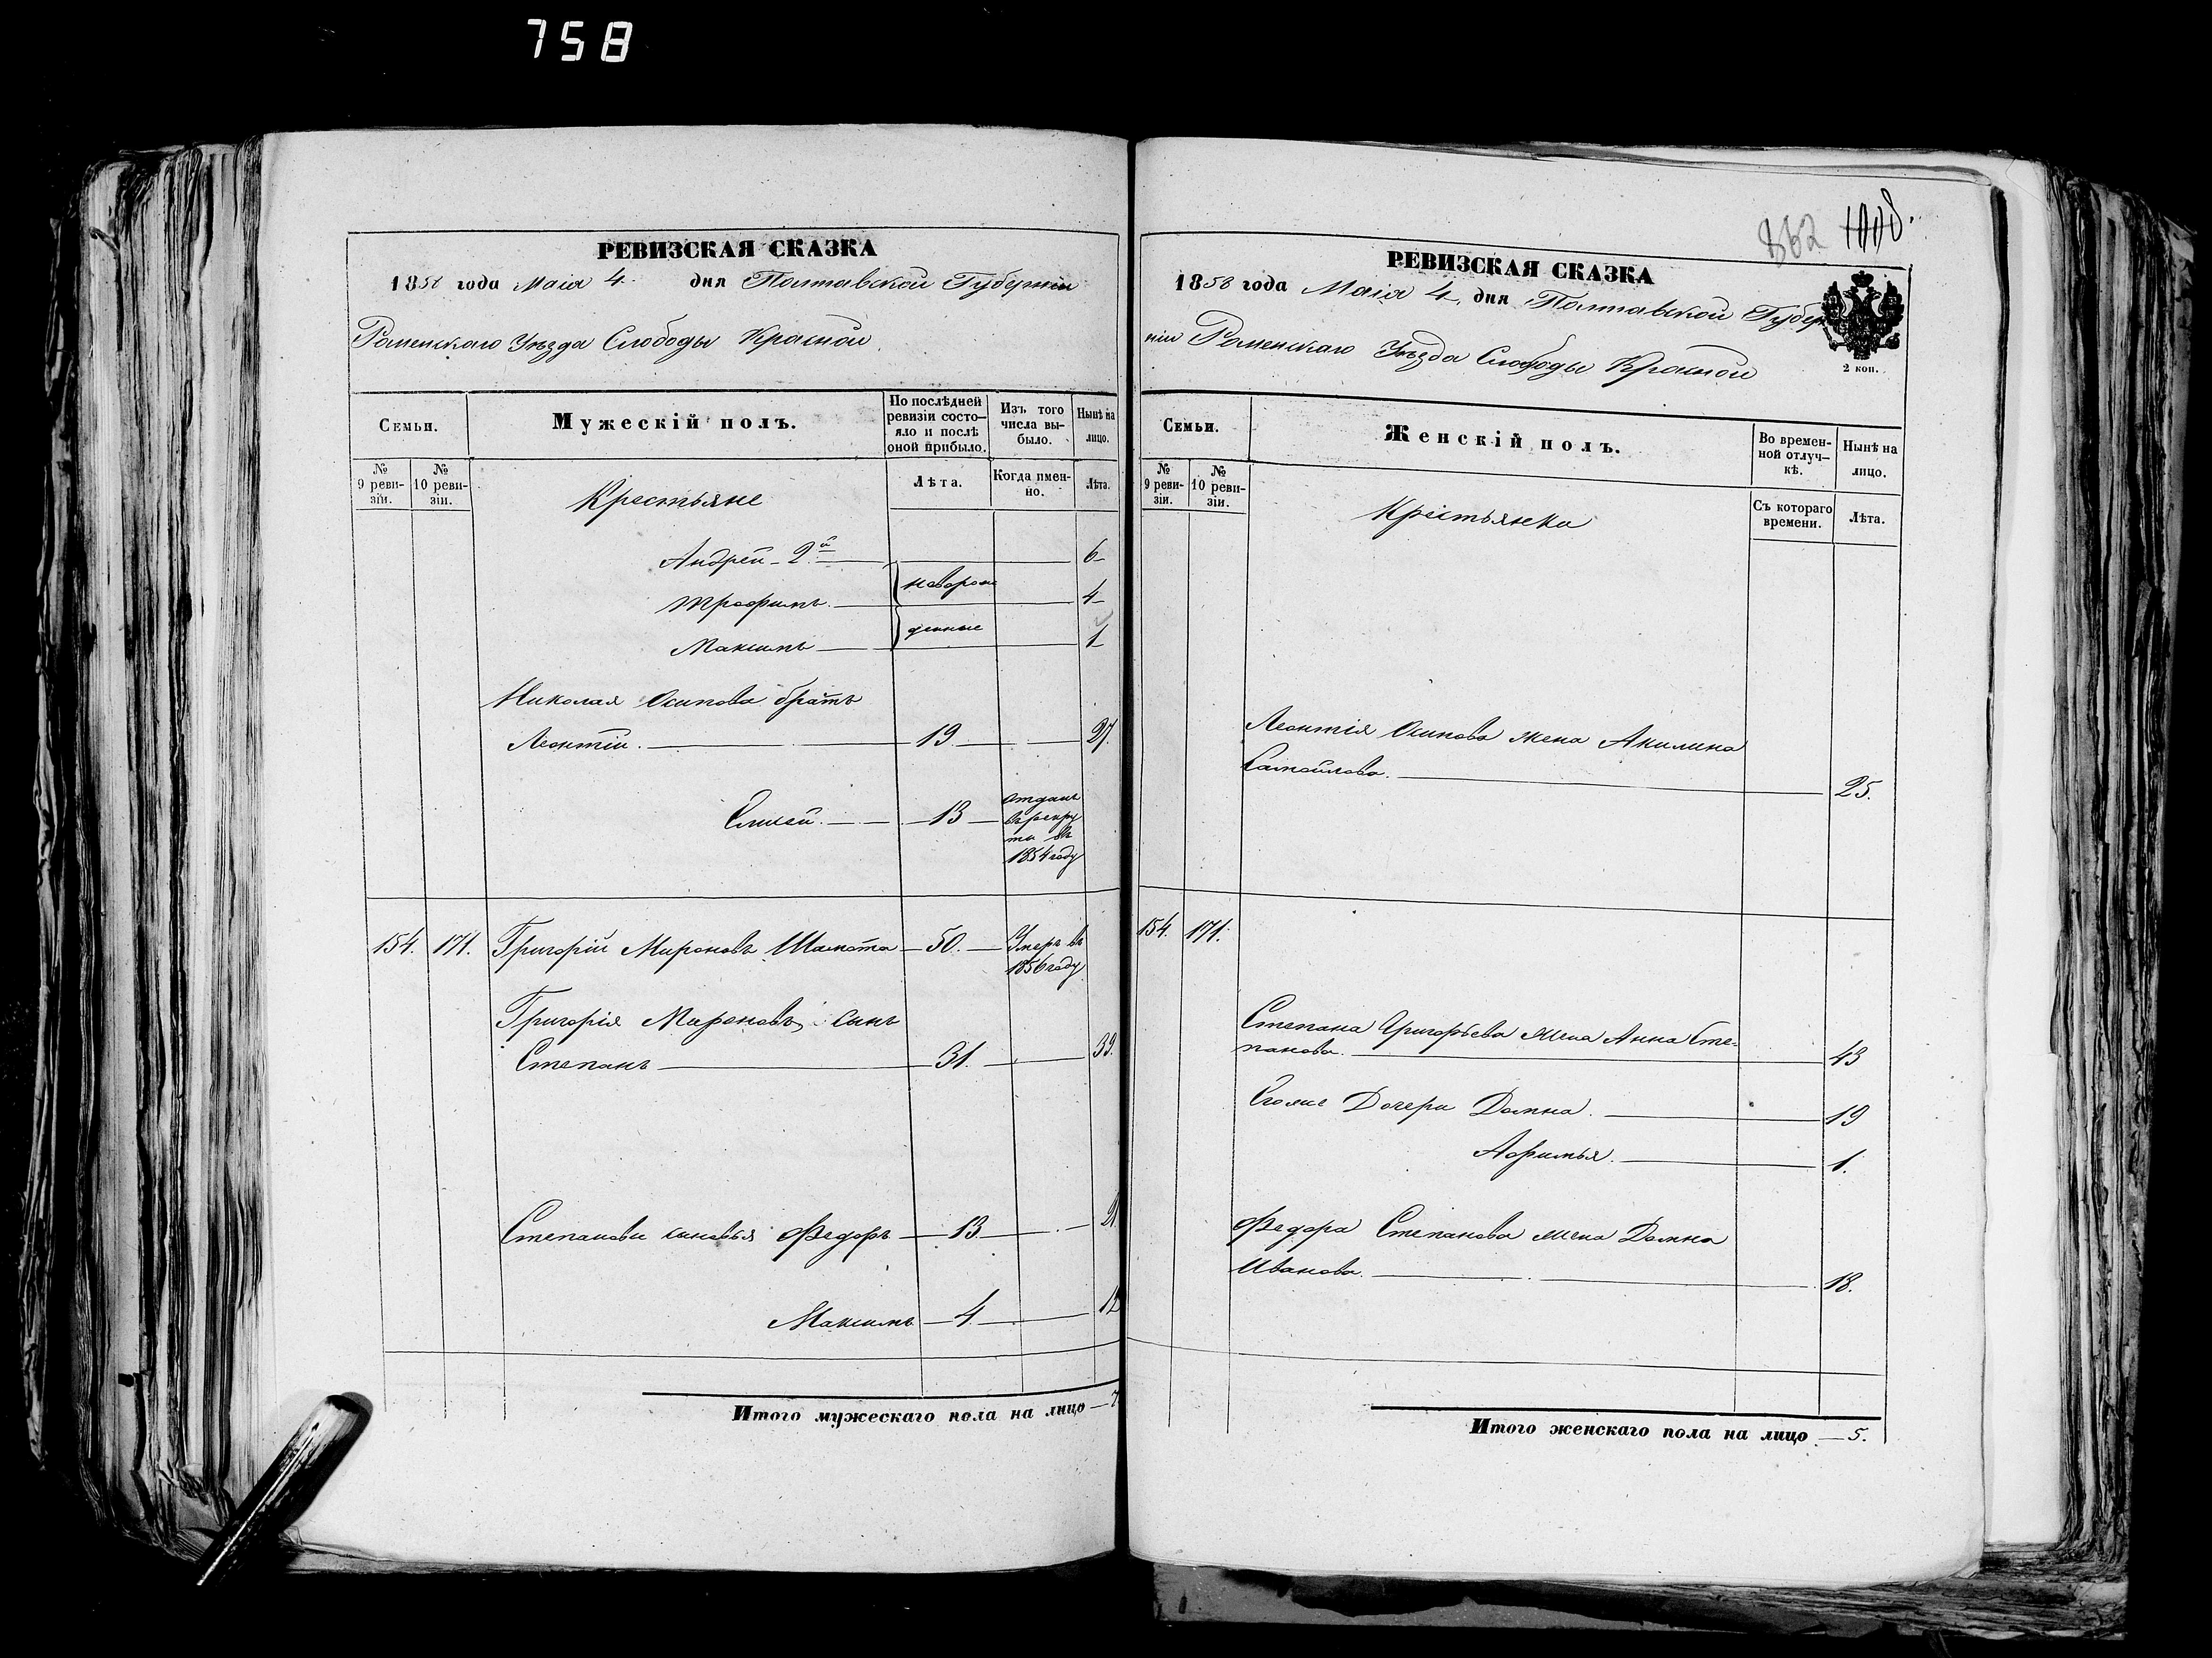 758
РЕВИЗСКАЯ СКАЗКА
1858 года Маія 4 дня Полтавской Губерніи
Роменскаго Уѣзда Слободы Красной
Семьи.
Мужескій полъ.
По послѣдней ревизіи состояло и послѣ оной прибыло.
Изъ того числа выбыло.
Нынѣ на лицо.
№ 9 ревизіи.
№ 10 ревизіи.
Лѣта.
Когда именно.
Лѣта.
Крестьяне
Андрей 2й 6
Трофимъ 4
новорожденные
Максимъ 1
Николая Осипова братъ
Леонтій. 19 27.
Елисей. 13 отданъ въ рекруты въ 1854 году
154. 171. Григорій Мироновъ Шамота 50. Умеръ въ 1856 году
Григорія Миронова сынъ
Степанъ 31. 39.
Степановы сыновья Федоръ 13 21
Максимъ 4 12
Итого мужескаго пола на лицо 7
862 1008.
РЕВИЗСКАЯ СКАЗКА
1858 года Маія 4 дня Полтавской Губер
ніи Роменскаго Уѣзда Слободы Красной
2 коп.
Семьи.
Женскій полъ.
Во временной отлучкѣ.
Нынѣ на лицо.
№ 9 ревизіи.
№ 10 ревизіи.
Съ котораго времени.
Лѣта.
Крестьянки
Леонтія Осипова жена Акилина
Самойлова. 25.
154. 171.
Степана Григорьева жена Анна Сте-
панова. 43
Его же Дочери Домна. 19
Афимья. 1.
Федора Степанова жена Домна
Иванова. 18.
Итого женскаго пола на лицо 5.